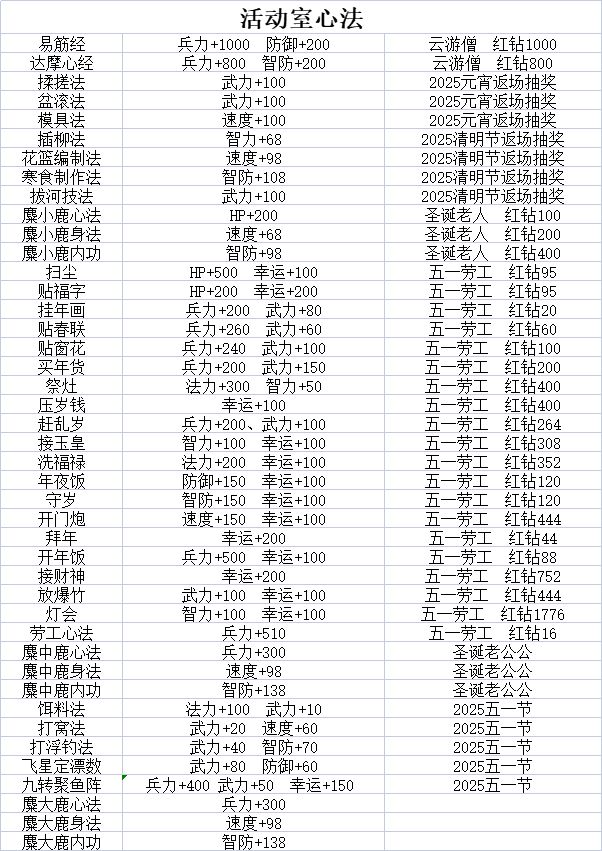 活动室心法
易筋经 兵力+1000 防御+200 云游僧 红钻1000
达摩心经 兵力+800 智防+200 云游僧 红钻800
揉搓法 武力+100 2025元宵返场抽奖
盆滚法 武力+100 2025元宵返场抽奖
模具法 速度+100 2025元宵返场抽奖
插柳法 智力+68 2025清明节返场抽奖
花篮编制法 速度+98 2025清明节返场抽奖
寒食制作法 智防+108 2025清明节返场抽奖
拔河技法 武力+100 2025清明节返场抽奖
麋小鹿心法 HP+200 圣诞老人 红钻100
麋小鹿身法 速度+68 圣诞老人 红钻200
麋小鹿内功 智防+98 圣诞老人 红钻400
扫尘 HP+500 幸运+100 五一劳工 红钻95
贴福字 HP+200 幸运+200 五一劳工 红钻95
挂年画 兵力+200 武力+80 五一劳工 红钻20
贴春联 兵力+260 武力+60 五一劳工 红钻60
贴窗花 兵力+240 武力+100 五一劳工 红钻100
买年货 兵力+200 武力+150 五一劳工 红钻200
祭灶 法力+300 智力+50 五一劳工 红钻400
压岁钱 幸运+100 五一劳工 红钻400
赶乱岁 兵力+200、武力+100 五一劳工 红钻264
接玉皇 智力+100 幸运+100 五一劳工 红钻308
洗福禄 法力+200 幸运+100 五一劳工 红钻352
年夜饭 防御+150 幸运+100 五一劳工 红钻120
守岁 智防+150 幸运+100 五一劳工 红钻120
开门炮 速度+150 幸运+100 五一劳工 红钻444
拜年 幸运+200 五一劳工 红钻44
开年饭 兵力+500 幸运+100 五一劳工 红钻88
接财神 幸运+200 五一劳工 红钻752
放爆竹 武力+100 幸运+100 五一劳工 红钻444
灯会 智力+100 幸运+100 五一劳工 红钻1776
劳工心法 兵力+510 五一劳工 红钻16
麋中鹿心法 兵力+300 圣诞老公公
麋中鹿身法 速度+98 圣诞老公公
麋中鹿内功 智防+138 圣诞老公公
饵料法 法力+100 武力+10 2025五一节
打窝法 武力+20 速度+60 2025五一节
打浮钓法 武力+40 智防+70 2025五一节
飞星定漂数 武力+80 防御+60 2025五一节
九转聚鱼阵 兵力+400 武力+50 幸运+150 2025五一节
麋大鹿心法 兵力+300
麋大鹿身法 速度+98
麋大鹿内功 智防+138